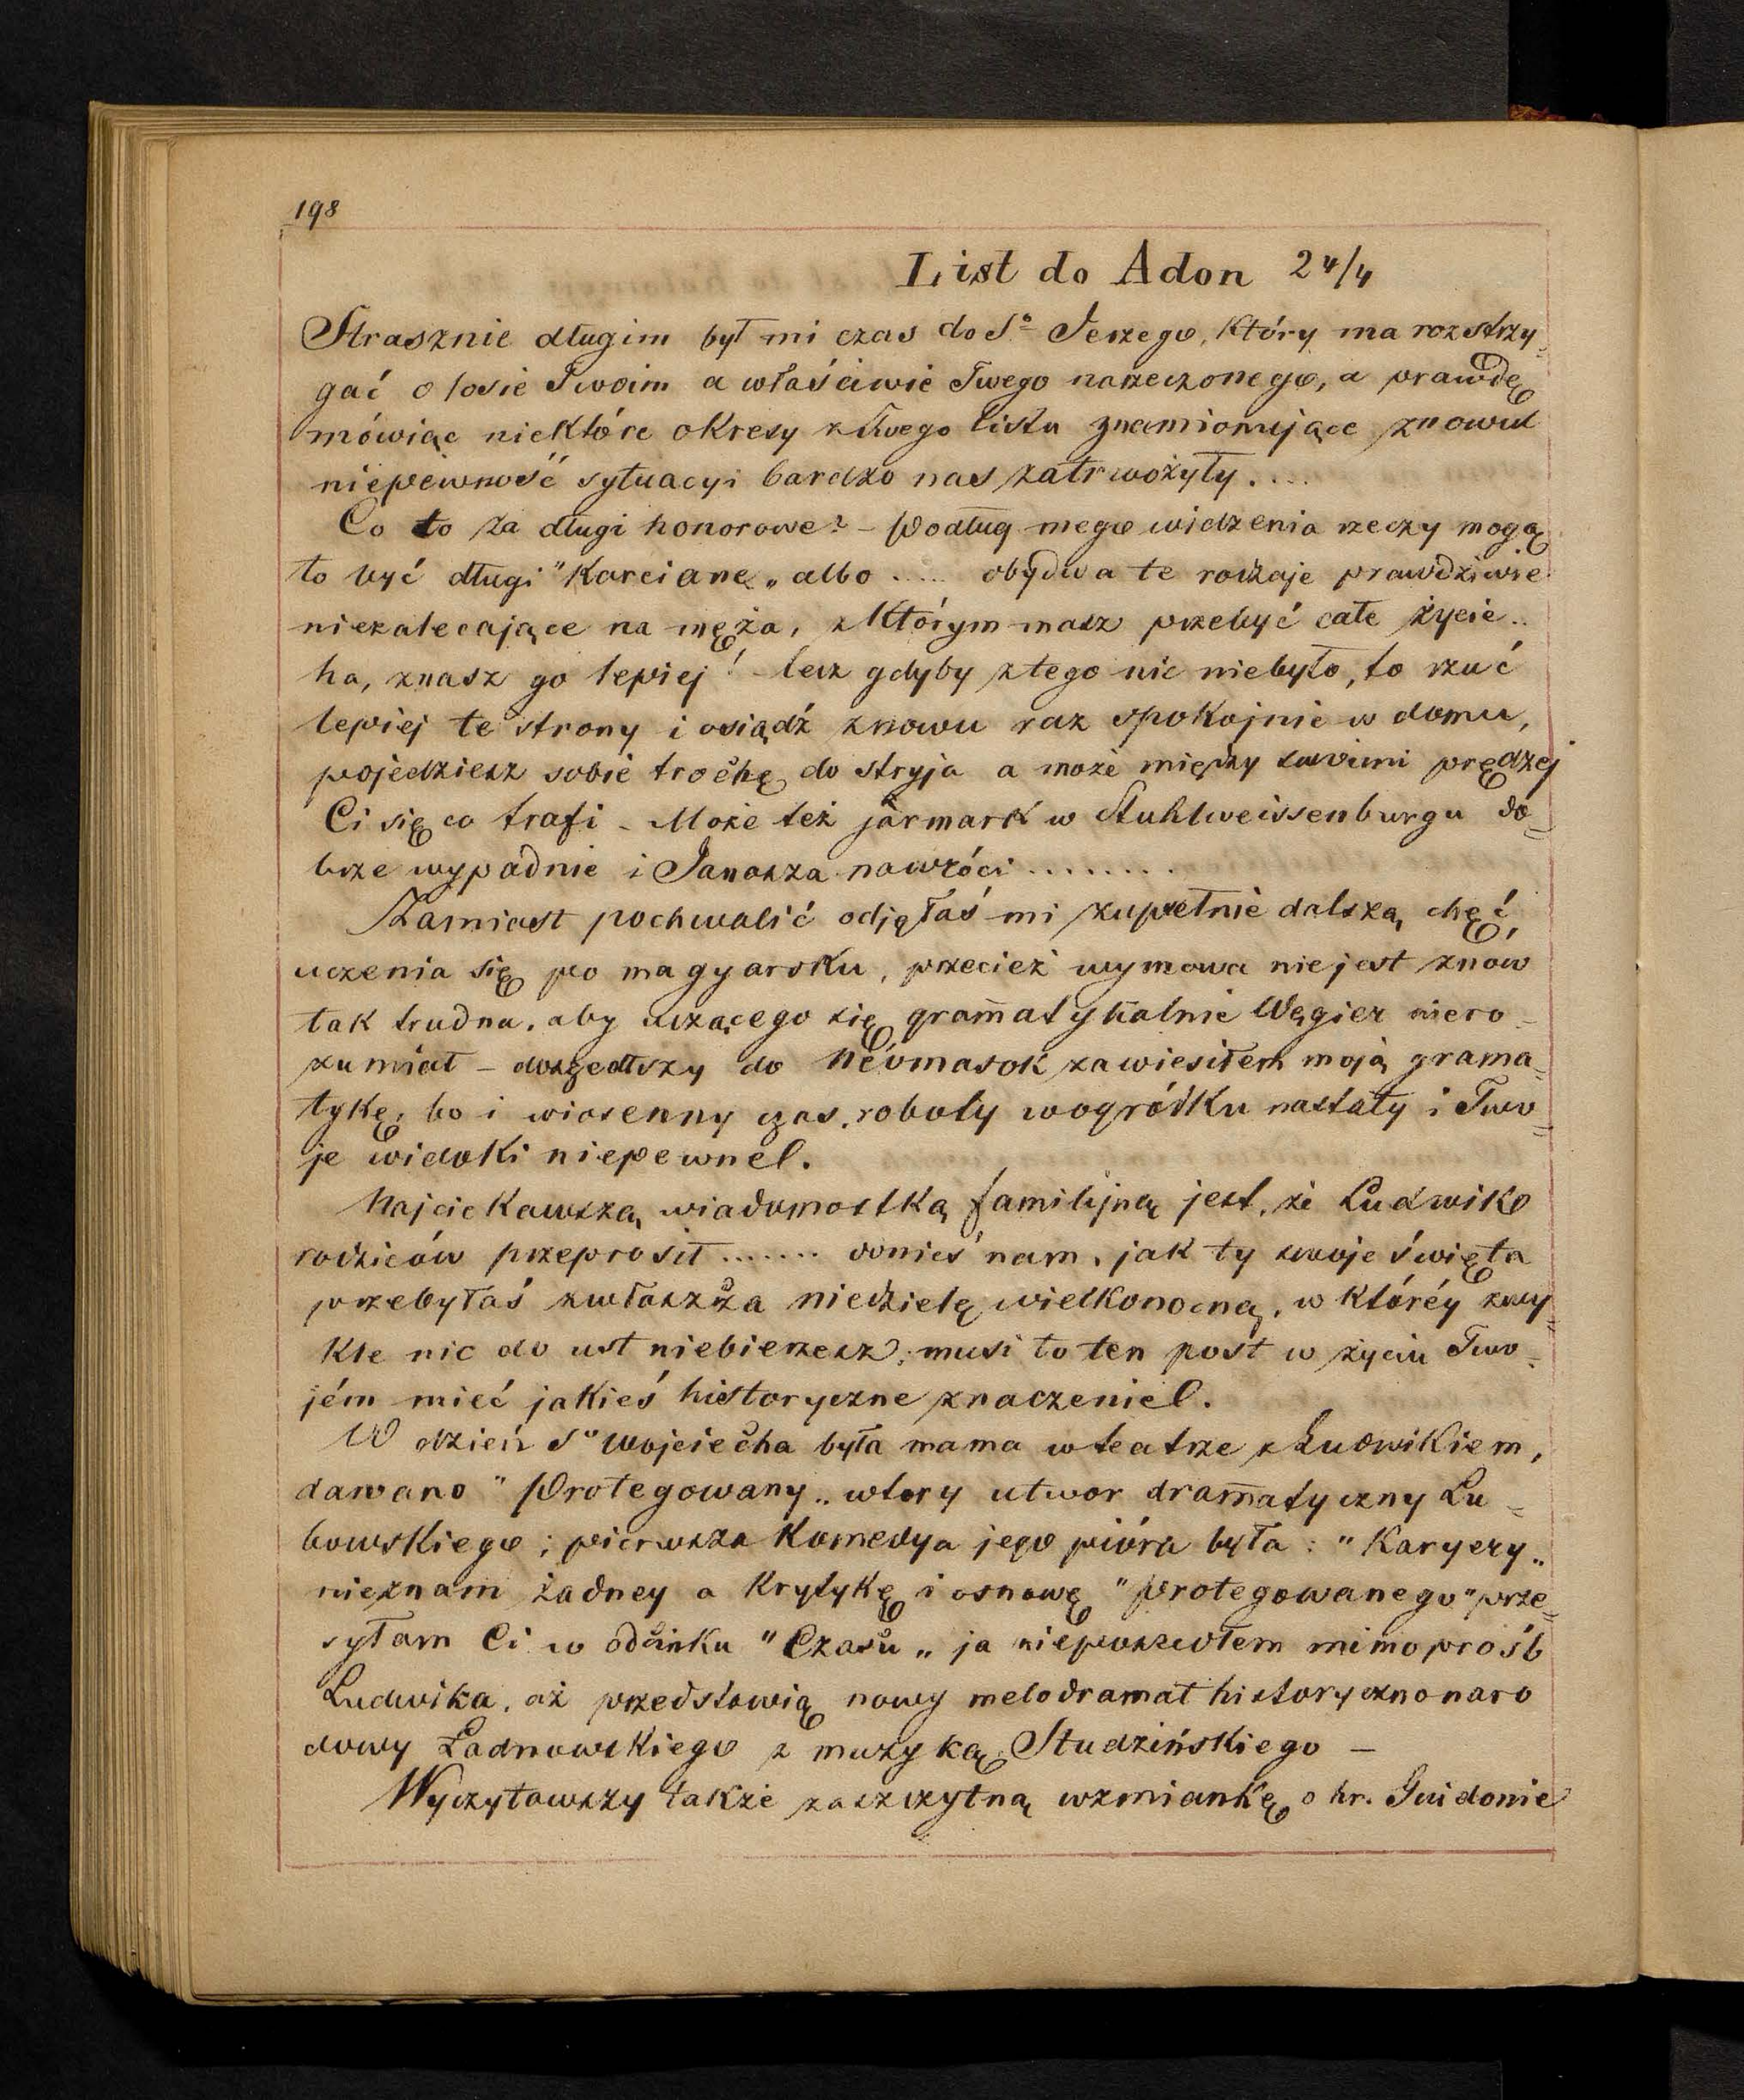 198
List do Adon 24/4
Strasznie długim był mi czas do So Jerzego, który ma rozstrzy=
gać o losie Twoim a właściwie Twego narzeczonego, a prawdę
mówiąc niektóre okresy z Twego listu znamionujące znowu
niepewność sytuacyi bardzo nas zatrwożyły....
Co to za długi honorowe? – Podług mego widzenia rzeczy mogą
to być długi "Karciane„ albo ..... obydwa te rodzaje prawdziwie
niezalecające na męża, z którym masz przebyć całe życie..
ha, znasz go lepiej! lecz gdyby z tego nic niebyło, to rzuć
lepiej te strony i osiądź znowu raz spokojnie w domu,
pojedziesz sobie trochę do stryja a może między swoimi prędzej
Ci się co trafi – Może też jarmark w Stuhlweissenburgu do=
brze wypadnie i Janosza nawróci ........
Zamiast pochwalić odjęłaś mi zupełnie dalszą chęć,
uczenia się po magyarsku, przecież wymowa nie jest znów
tak trudna, aby uczącego się gram̄atykalnie Węgier niero=
zumiał – doszedłszy do Névmasok zawiesiłem moją grama=
tykę, bo i wiosenny czas, roboty w ogródku nastały i Two=
je widoki niepewne!.
Najciekawszą wiadomostką familijną jest, że Ludwik
rodziców przeprosił ....... donieś nam, jak ty swoje święta
przebyłaś zwłaszcza niedzielę wielkonocną, w któréy zwy=
kle nic do ust niebierzesz; musi to ten post w życiu Two=
jém mieć jakieś historyczne znaczenie!.
W dzień So Wojciecha była mama w teatrze z Ludwikiem,
dawano "Protegowany„ wtory utwor dram̄atyczny Lu=
bowskiego; pierwsza Komedya jego pióra była: "Karyery„
nieznam żadney a krytykę i osnowę "protegowanego" prze=
syłam Ci w odcinku "Czasu„ ja nieposzedłem mimo próśb
Ludwika, aż przedstawią nowy melodramat historyczno naro
dowy Ładnowskiego z muzyką Studzińskiego –
Wyczytawszy także zaszczytną wzmiankę o hr. Guidonie